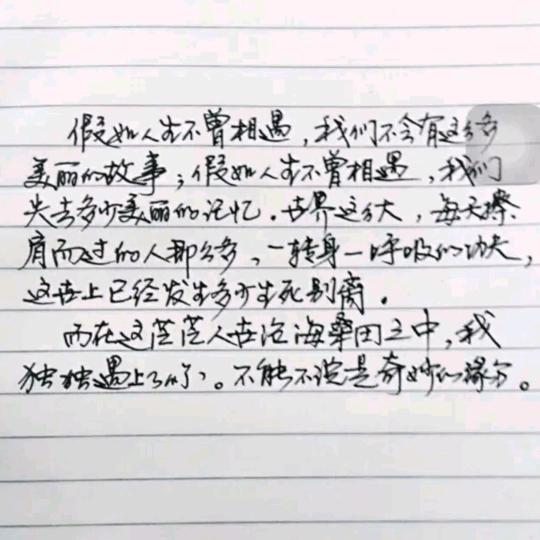 假如人生不曾相遇，我们不会有这么多
美丽的故事；假如人生不曾相遇，我们
失去多少美丽的记忆。世界这么大，每天擦
肩而过的人那么多，一转身一呼吸的功夫，
这世上已经发生多少生死别离。
而在这茫茫人世沧海桑田之中，我
独独遇上了你。不能不说是奇妙的缘分。